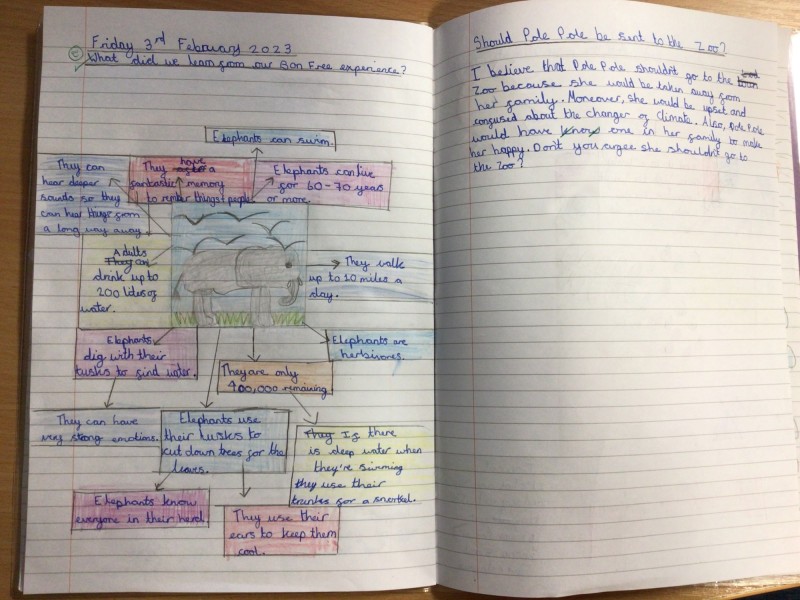 Friday 3rd February 2023
What did we learn from our Bon Free experience?
Elephants can swim.
They can
hear deeper
sounds so they
can hear things from
a long way away
They have a
fantastic memory
to rember things/people
Elephants can live
for 60-70 years
or more.
Adults
They can
drink up to
200 litles of
water.
They walk
up to 10 miles a
day.
Elephants
dig with their
tusks to find water.
They are only
400,000 remaining.
Elephants are
herbivores.
They can have
very strong emotions.
Elephants use
their tusks to
cut down trees for the
leaves.
They If there
is deep water when
they're swimming
they use their
trunks for a snorkel.
Elephants know
everyone in their herd.
They use their
ears to keep them
cool.
Should Pole Pole be sent to the Zoo?
I believe that Pole Pole shouldn't go to the
Zoo because she would be taken away from
her family. Moreover, she would be upset and
confused about the changer of climate. Also, Pole Pole
would have know one in her family to make
her happy. Don't you agee she shouldn't go to
the Zoo?